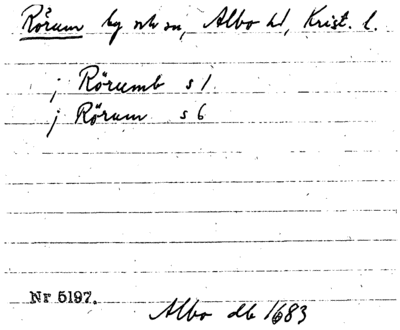 Rörum by o sn, Albo hd, Krist. l.
j Rörumb s 1
j Rörum s 6
Nr 5197.
Albo db 1683